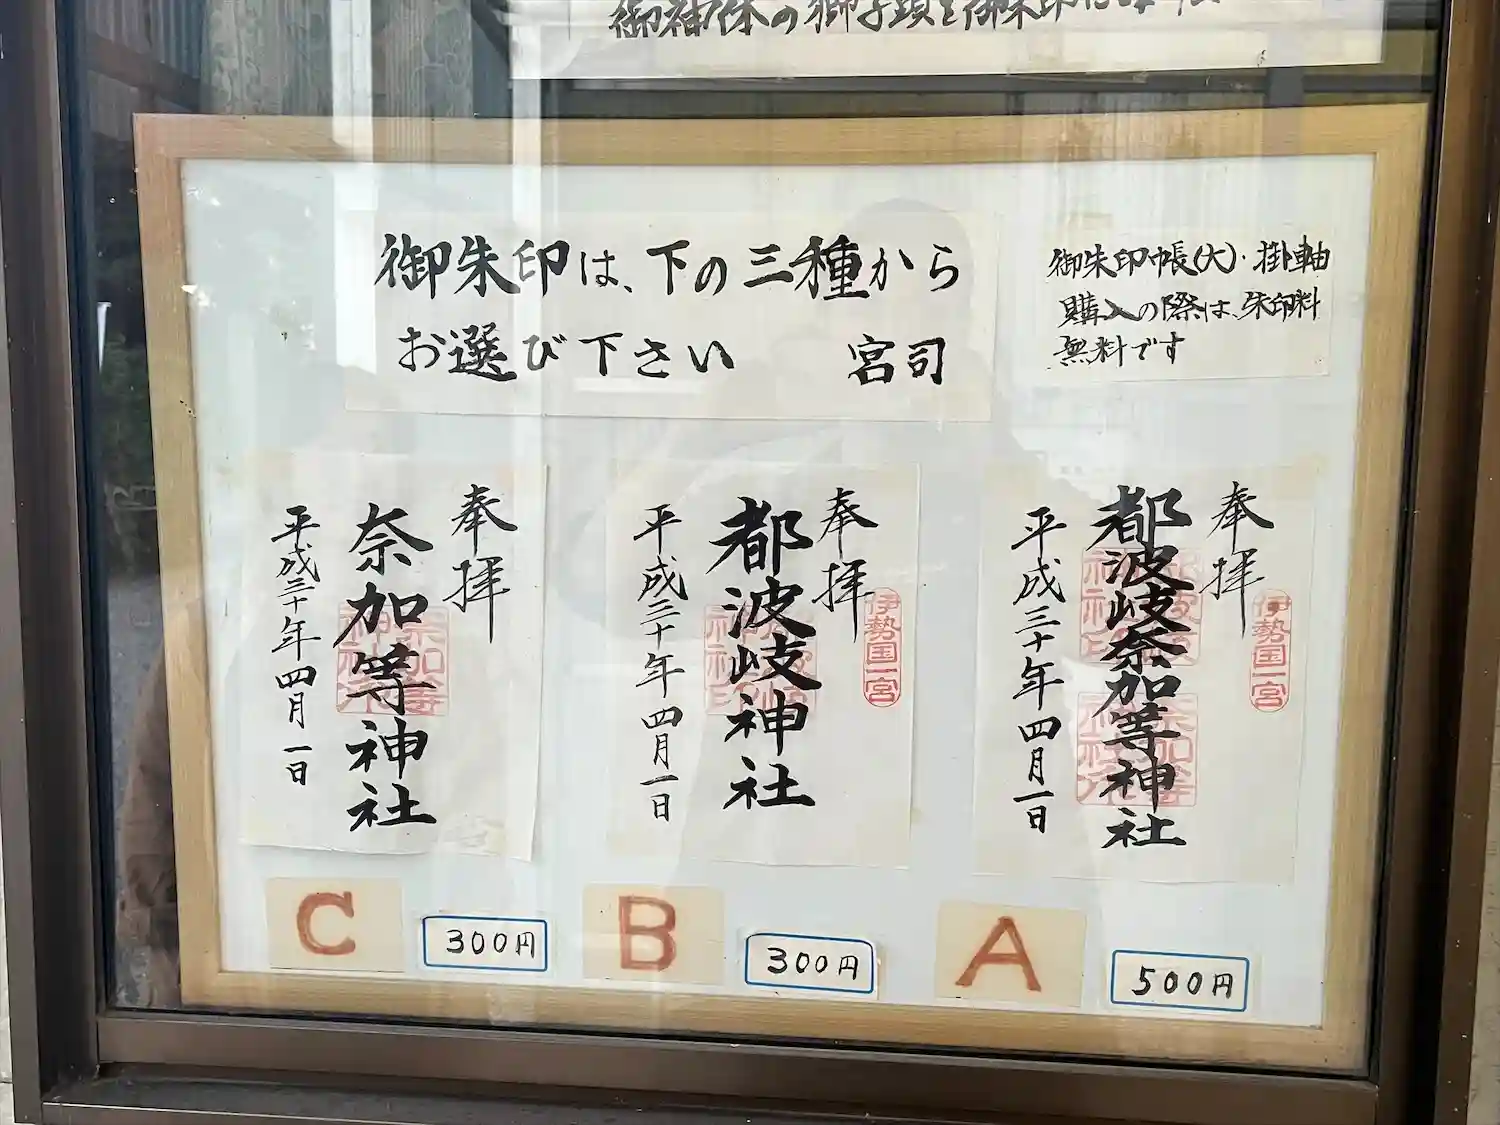 御神体の獅子頭を御朱印に
御朱印は、下の三種から
お選び下さい 宮司
御朱印帳(大)・掛軸
購入の際は、朱印料
無料です
奉拝
伊勢国一宮
都波岐奈加等神社
平成三十年四月一日
A
500円
奉拝
伊勢国一宮
都波岐神社
平成三十年四月一日
B
300円
奉拝
奈加等神社
平成三十年四月一日
C
300円